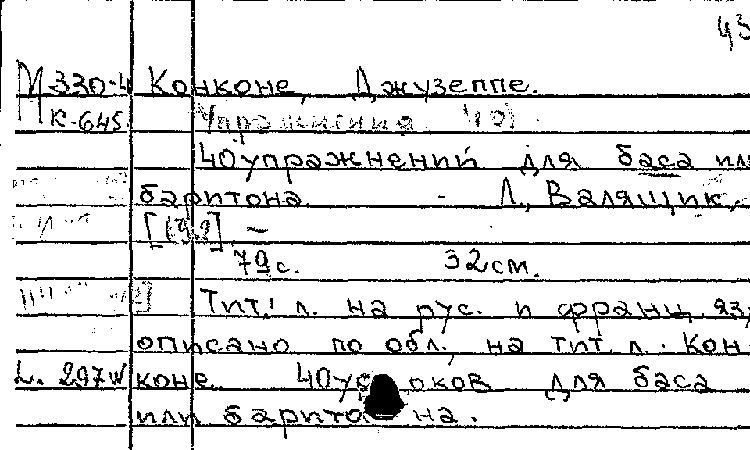 43
М 330-4 Конконе, Джузеппе.
К-645 Упражнения
40 упражнений для баса или
баритона. - Л., Валящик,
79 с. 32 см.
Тит. л. на рус. и франц. яз,
описано по обл., на тит. л. Кон-
L. 297 W коне. 40 уроков для баса
или баритона.